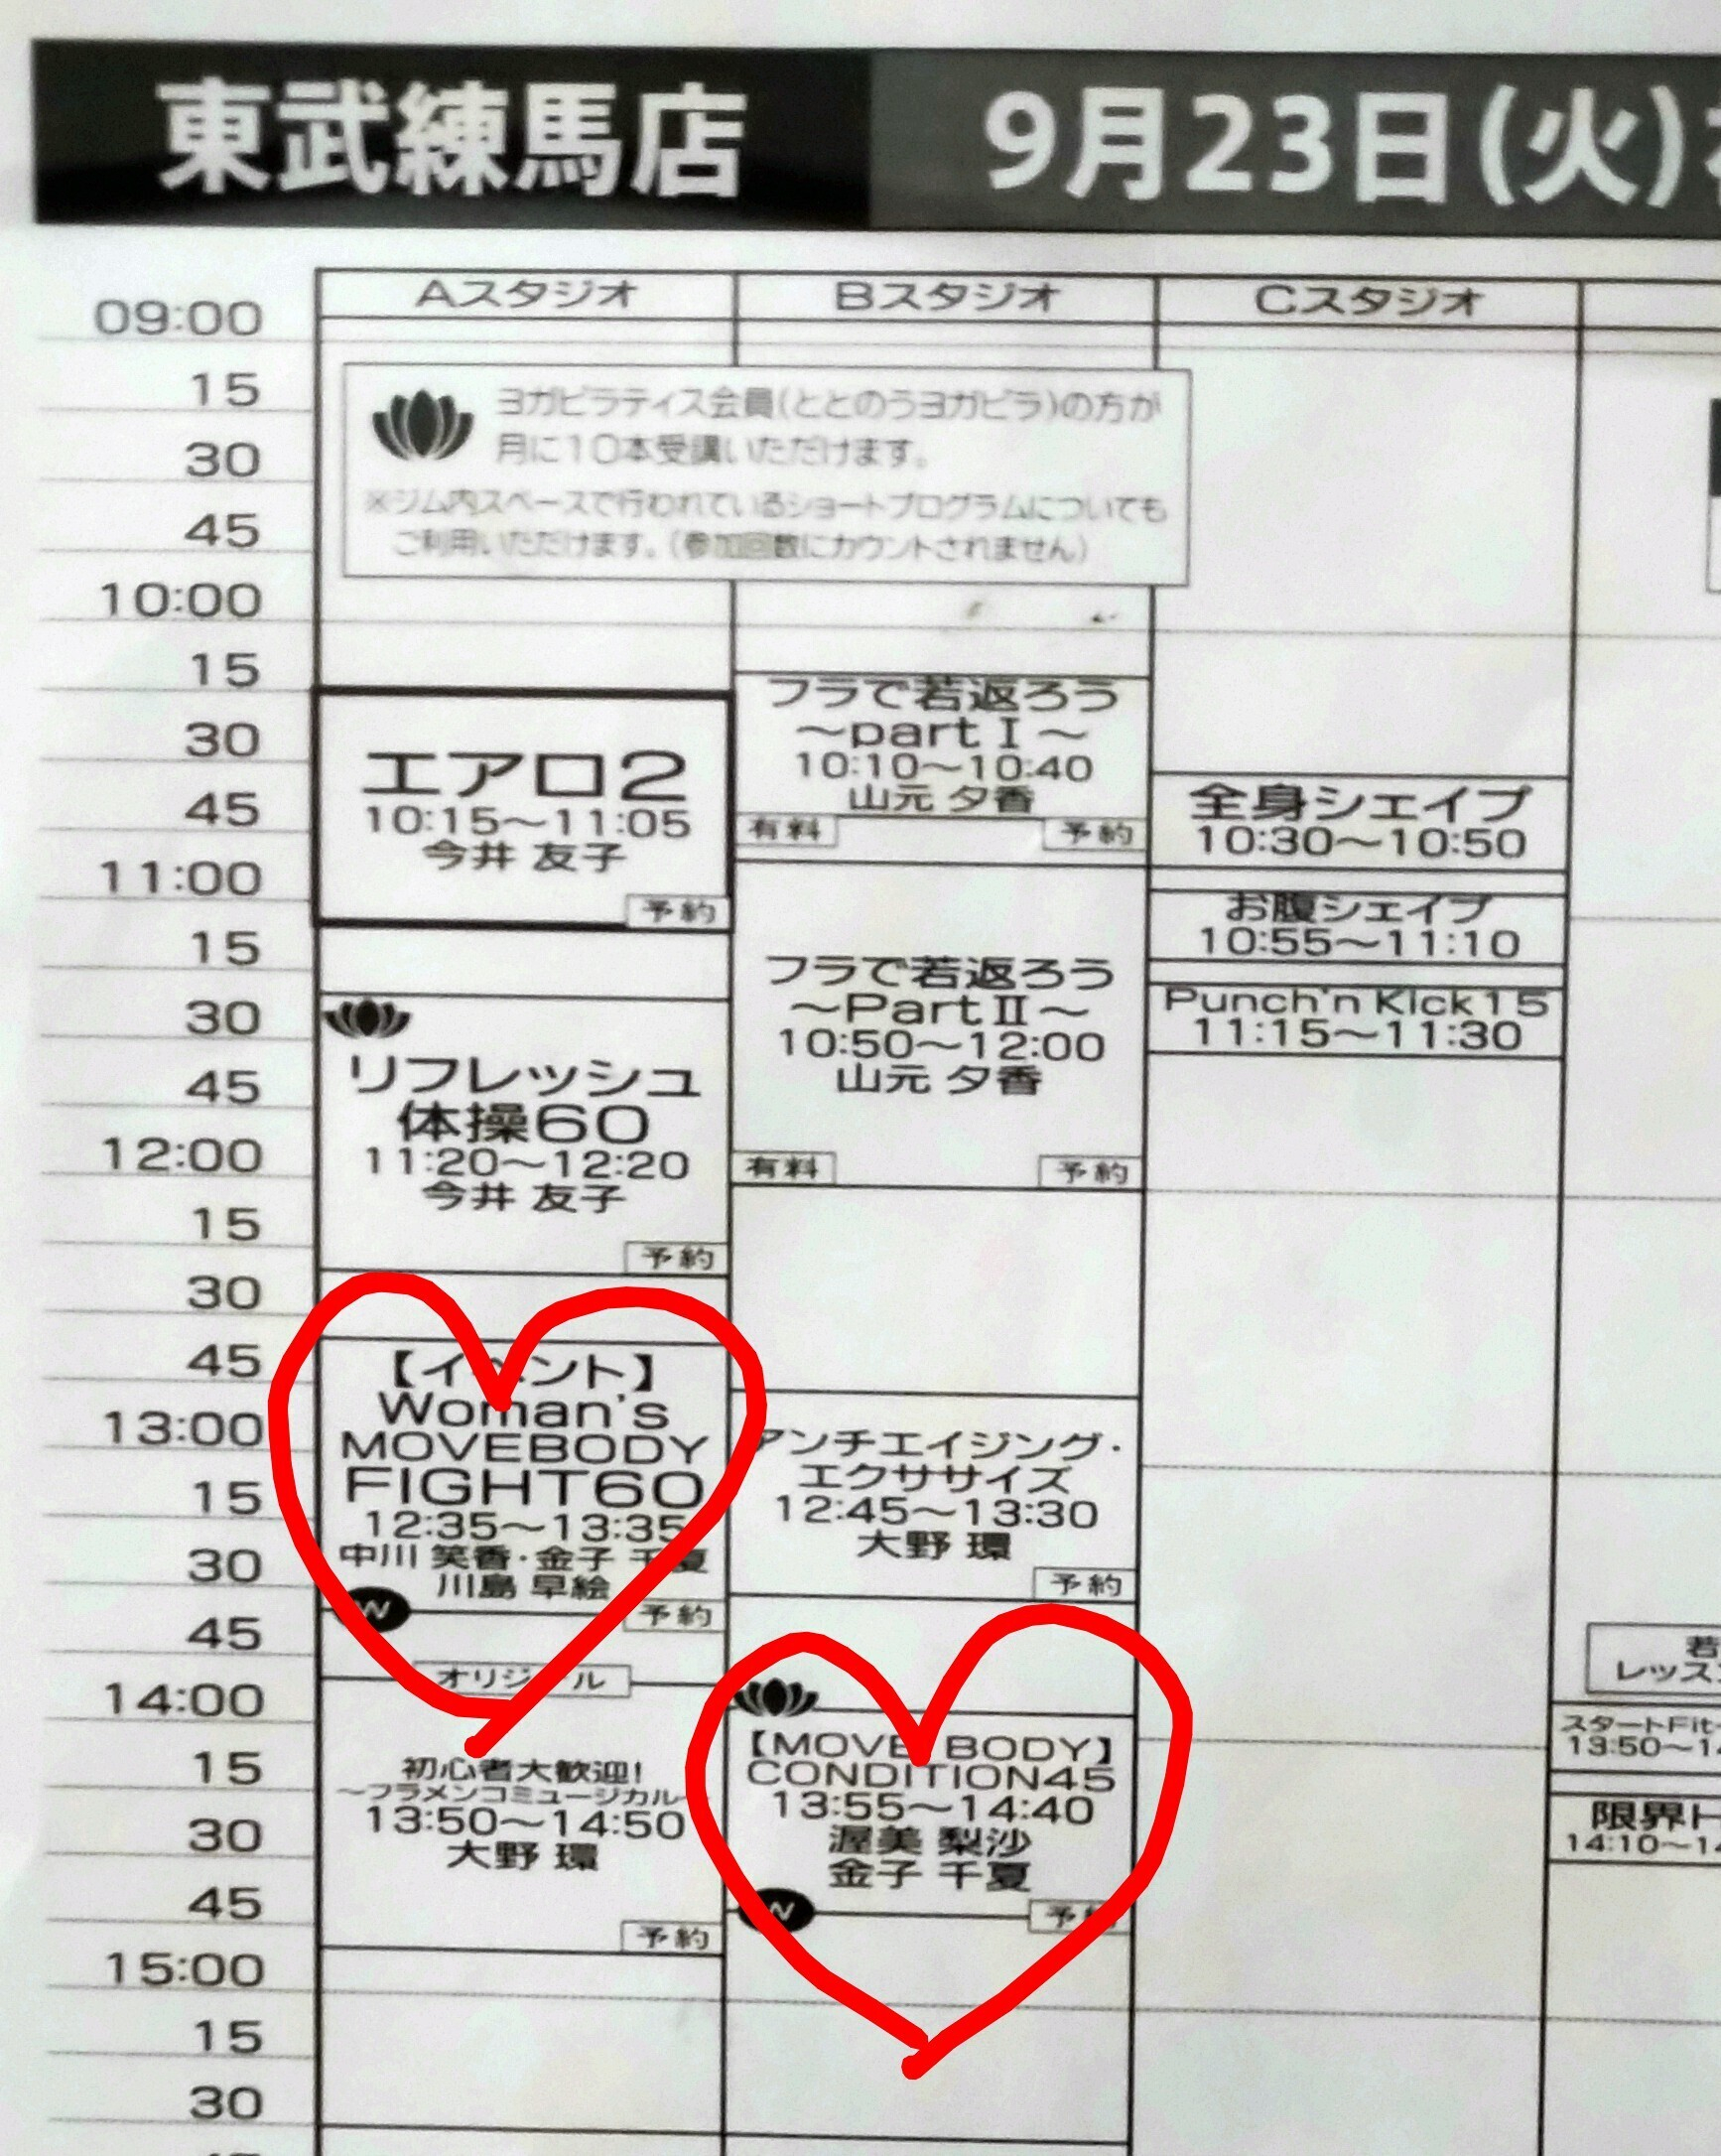 東武練馬店
9月23日(火)
Aスタジオ
Bスタジオ
Cスタジオ
09:00
15
30
45
10:00
15
30
45
11:00
15
30
45
12:00
15
30
45
13:00
15
30
45
14:00
15
30
45
15:00
15
30
ヨガピラティス会員(ととのうヨガピラ)の方が
月に10本受講いただけます。
※ジム内スペースで行われているショートプログラムについても
ご利用いただけます。(参加回数にカウントされません)
エアロ2
10:15〜11:05
今井 友子
予約
リフレッシュ
体操60
11:20〜12:20
今井 友子
予約
【イベント】
Woman's
MOVEBODY
FIGHT60
12:35〜13:35
中川 笑香・金子 千夏
川島 早絵
W
予約
オリジナル
初心者大歓迎!
〜フラメンコミュージカル〜
13:50〜14:50
大野 環
予約
フラで若返ろう
〜part I〜
10:10〜10:40
山元 夕香
有料
予約
フラで若返ろう
〜Part II〜
10:50〜12:00
山元 夕香
有料
予約
アンチエイジング・
エクササイズ
12:45〜13:30
大野 環
予約
【MOVE BODY】
CONDITION45
13:55〜14:40
渥美 梨沙
金子 千夏
N
予約
全身シェイプ
10:30〜10:50
お腹シェイプ
10:55〜11:10
Punch'n Kick15
11:15〜11:30
若
レッス
スタートFit
13:50〜14
限界H
14:10〜14